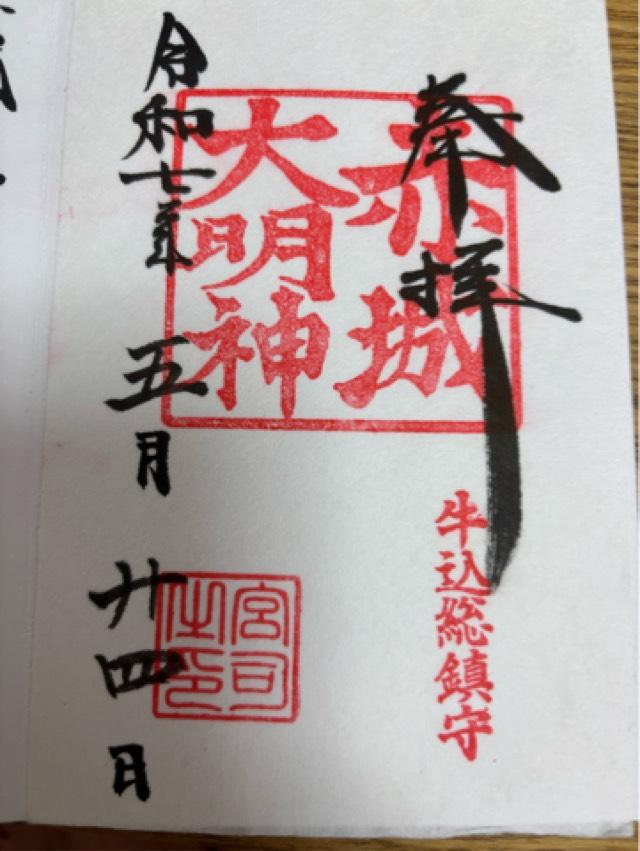 奉拝
赤城
大明神
牛込総鎮守
宮司
之印
令和七年
五月
廿四日